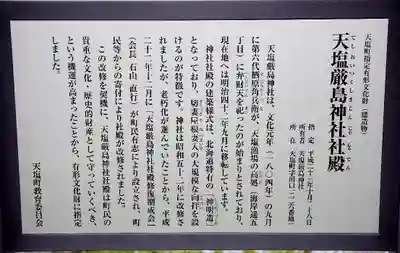 天塩町指定有形文化財（建造物）
てしおいつくしまじんじゃしゃでん
天塩厳島神社社殿
指定 平成二十三年十月二十八日
所有者 天塩厳島神社
所在 天塩町字川口
天塩厳島神社は、文化元年（一八〇四年）の九月
に第六代栖原角兵衛が、天塩漁場の高処（海岸通五
丁目）に弁財天を祀ったのが始まりとされており、
現在地へは明治四十二年九月に移転しています。
神社社殿の建築様式は、北海道特有の「神明造」
となっており、切妻屋根妻入の大規模な向拝を設
けるのが特徴です。神社は昭和五十二年に改修さ
れましたが、老朽化が進んでいたことから、平成
二十二年十二月に「天塩厳島神社社殿修復期成会」
（会長 石山 直行）が町民有志により設立され、町
民等からの寄付により社殿が改修されました。
この改修を契機に、天塩厳島神社社殿は町民の
貴重な文化・歴史的財産として守っていくべき、
という機運が高まったことから、有形文化財に指定
しました。
天塩町教育委員会